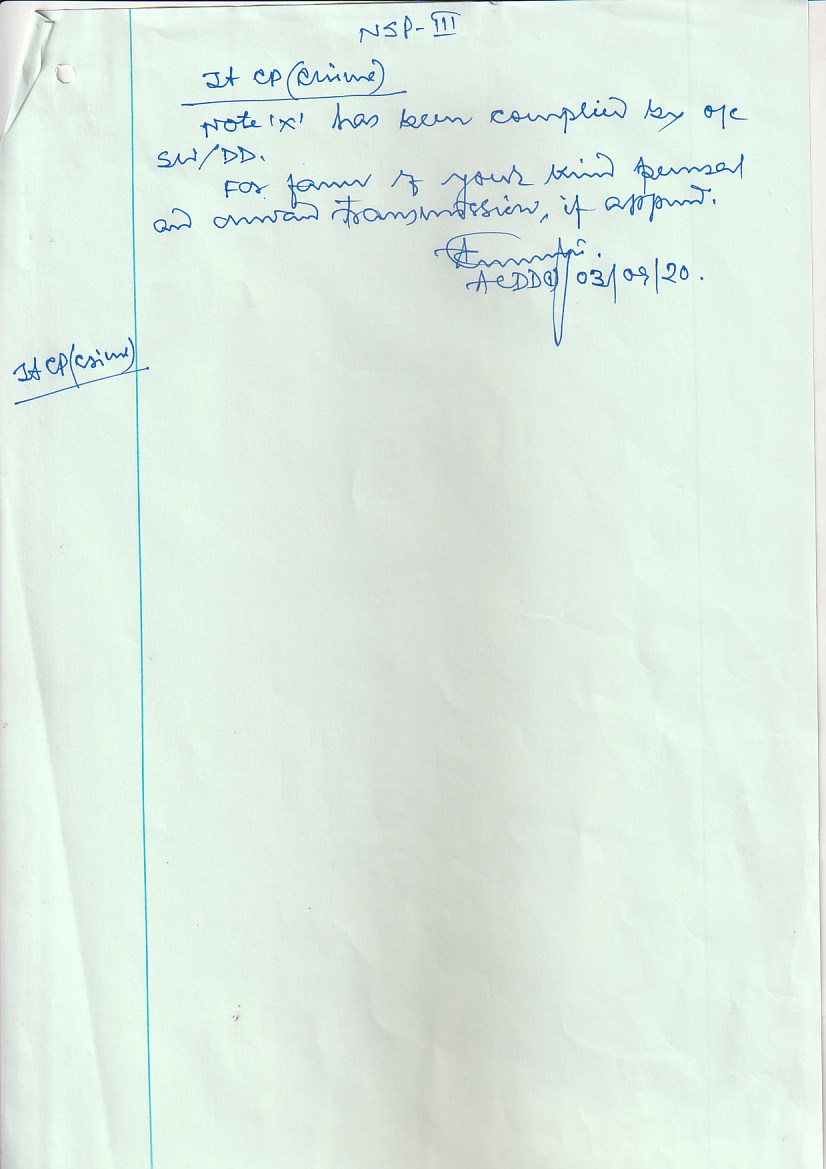 NSP-III
Jt CP (Crime)
Note 'X' has been complied by o/c
SW/DD.
For favour of your kind perusal
and onward transmission, if approved.
03/09/20.
Jt CP (Crime)